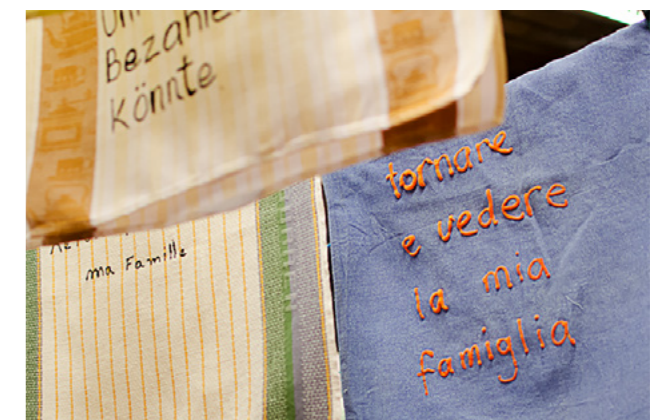 Bezahle
Könnte
ma Famille
tornare
e vedere
la mia
famiglia